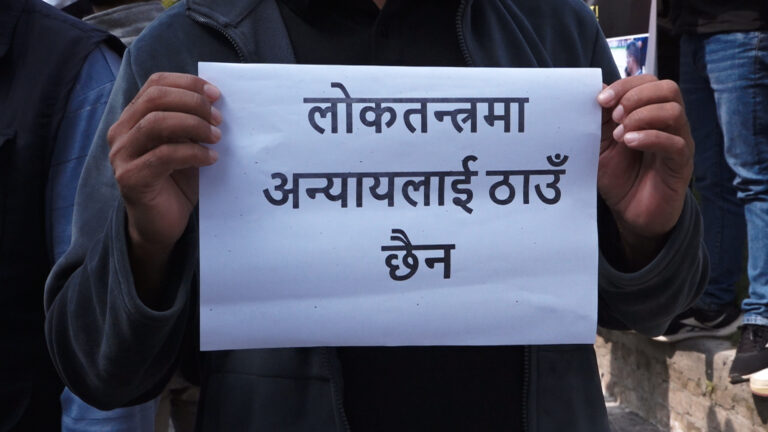 लोकतन्त्रमा
अन्यायलाई ठाउँ
छैन